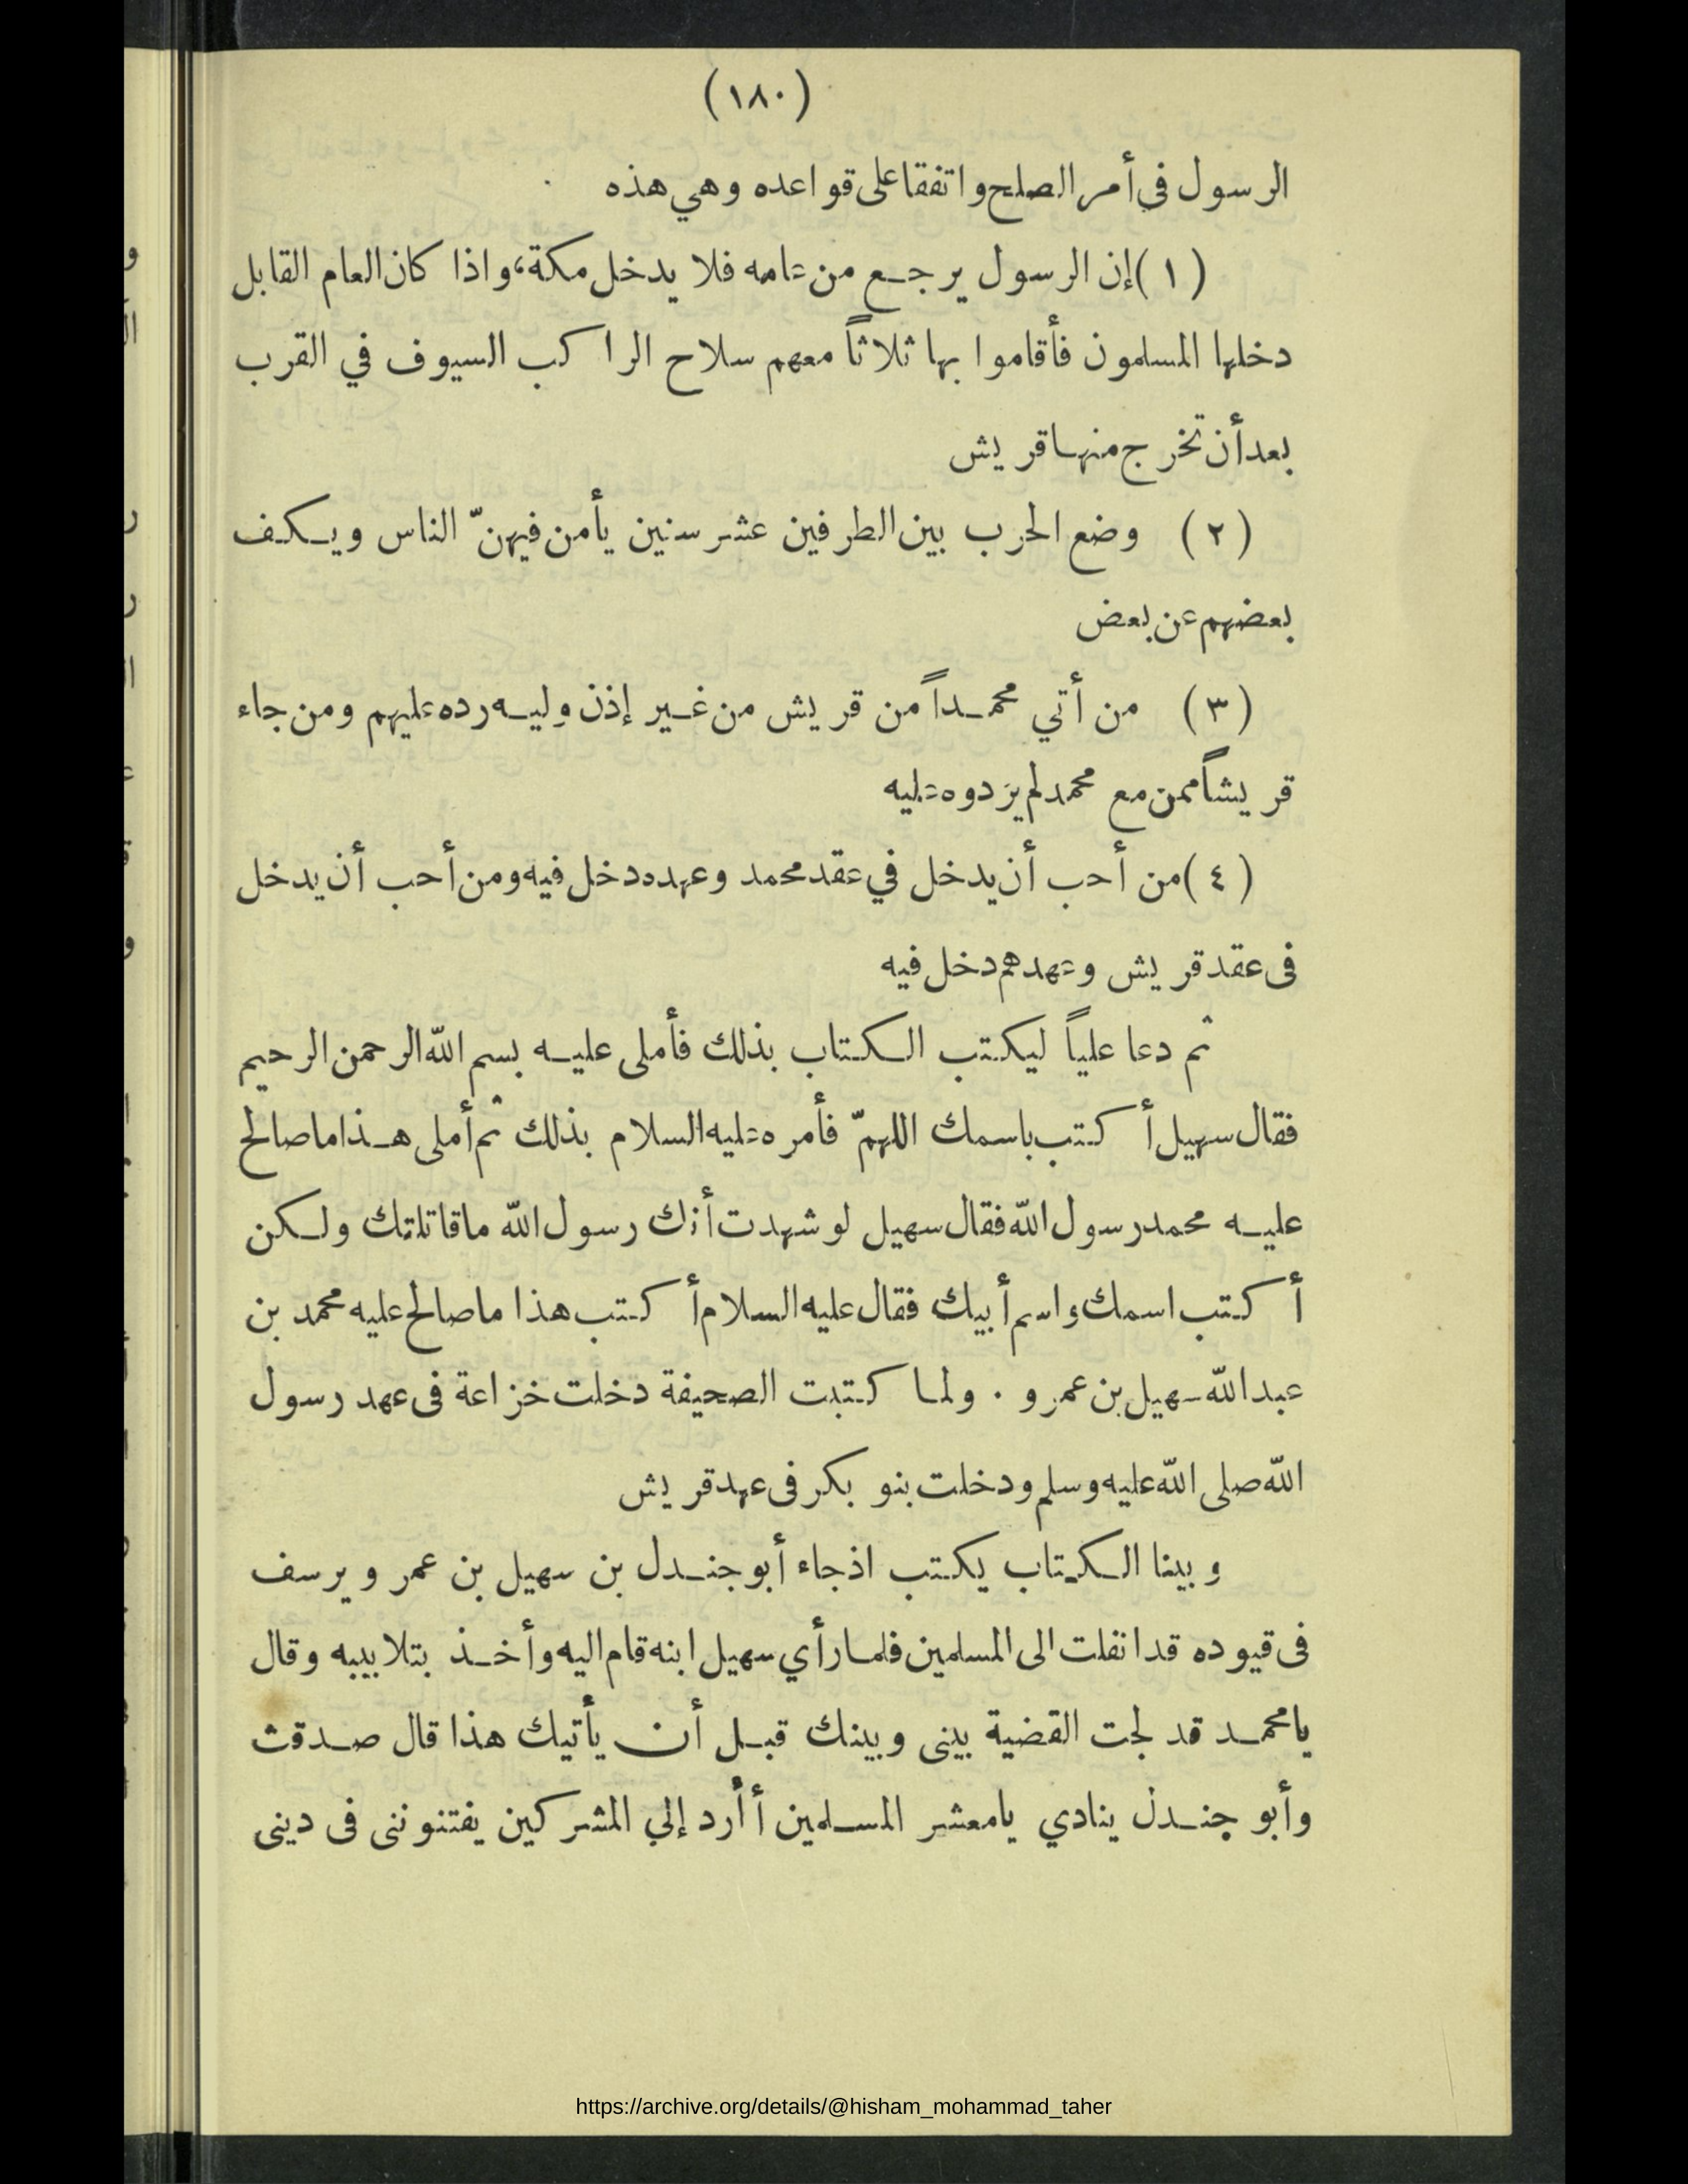 (١٨٠)
الرسول في أمر الصلح واتفقا على قواعده وهي هذه
(١) إن الرسول يرجع من عامه فلا يدخل مكة، واذا كان العام القابل
دخلها المسلمون فأقاموا بها ثلاثاً معهم سلاح الراكب السيوف في القرب
بعد أن تخرج منها قريش
(٢) وضع الحرب بين الطرفين عشر سنين يأمن فيهنّ الناس ويكف
بعضهم عن بعض
(٣) من أتي محمداً من قريش من غير إذن وليه رده عليهم ومن جاء
قريشاً ممن مع محمد لم يردوه عليه
(٤) من أحب أن يدخل في عقد محمد وعهده دخل فيه ومن أحب أن يدخل
فى عقد قريش وعهدهم دخل فيه
ثم دعا علياً ليكتب الكتاب بذلك فأملى عليه بسم الله الرحمن الرحيم
فقال سهيل أكتب باسمك اللهمّ فأمره عليه السلام بذلك ثم أملى هذا ما صالح
عليه محمد رسول الله فقال سهيل لو شهدت أنك رسول الله ما قاتلتك ولكن
أكتب اسمك واسم أبيك فقال عليه السلام أكتب هذا ما صالح عليه محمد بن
عبد الله سهيل بن عمرو . ولما كتبت الصحيفة دخلت خزاعة فى عهد رسول
الله صلى الله عليه وسلم ودخلت بنو بكر فى عهد قريش
وبينا الكتاب يكتب اذ جاء أبو جندل بن سهيل بن عمرو يرسف
فى قيوده قد انفلت الى المسلمين فلما رأي سهيل ابنه قام اليه وأخذ بتلابيبه وقال
يا محمد قد لجت القضية بينى وبينك قبل أن يأتيك هذا قال صدقت
وأبو جندل ينادي يا معشر المسلمين أأرد إلي المشركين يفتنوننى فى دينى
https://archive.org/details/@hisham_mohammad_taher